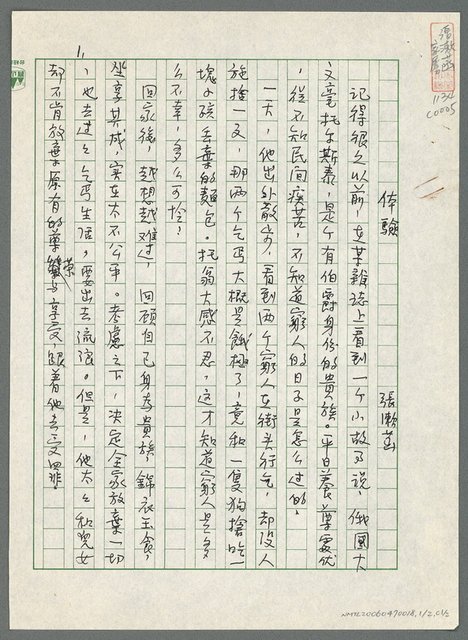 体驗
張漱菡
記得很久以前，在某雜誌上看到一个小故事說，俄國大
文豪托尔斯泰，是个有伯爵身份的貴族。平日養尊處优
，從不知民间疾苦，不知道窮人的日子是怎么过的。
一天，他出外散步，看到两个窮人在街头行乞，却没人
施捨一文，那两个乞丐大概是餓極了，竟和一隻狗搶吃一
塊小孩丢棄的麵包。托翁大感不忍，这才知道窮人是多
么不幸，多么可怜！
回家後，越想越难过，回顾自己身為貴族，錦衣玉食，
坐享其成，實在太不公平。考慮之下，决定全家放棄一切
，也去过过乞丐生活，要出去流浪。但是，他太太和兒女
却不肯放棄原有的華與享受跟着他去受罪。
1.
1134
C0005
NMTL20060470018,1/2,01/2